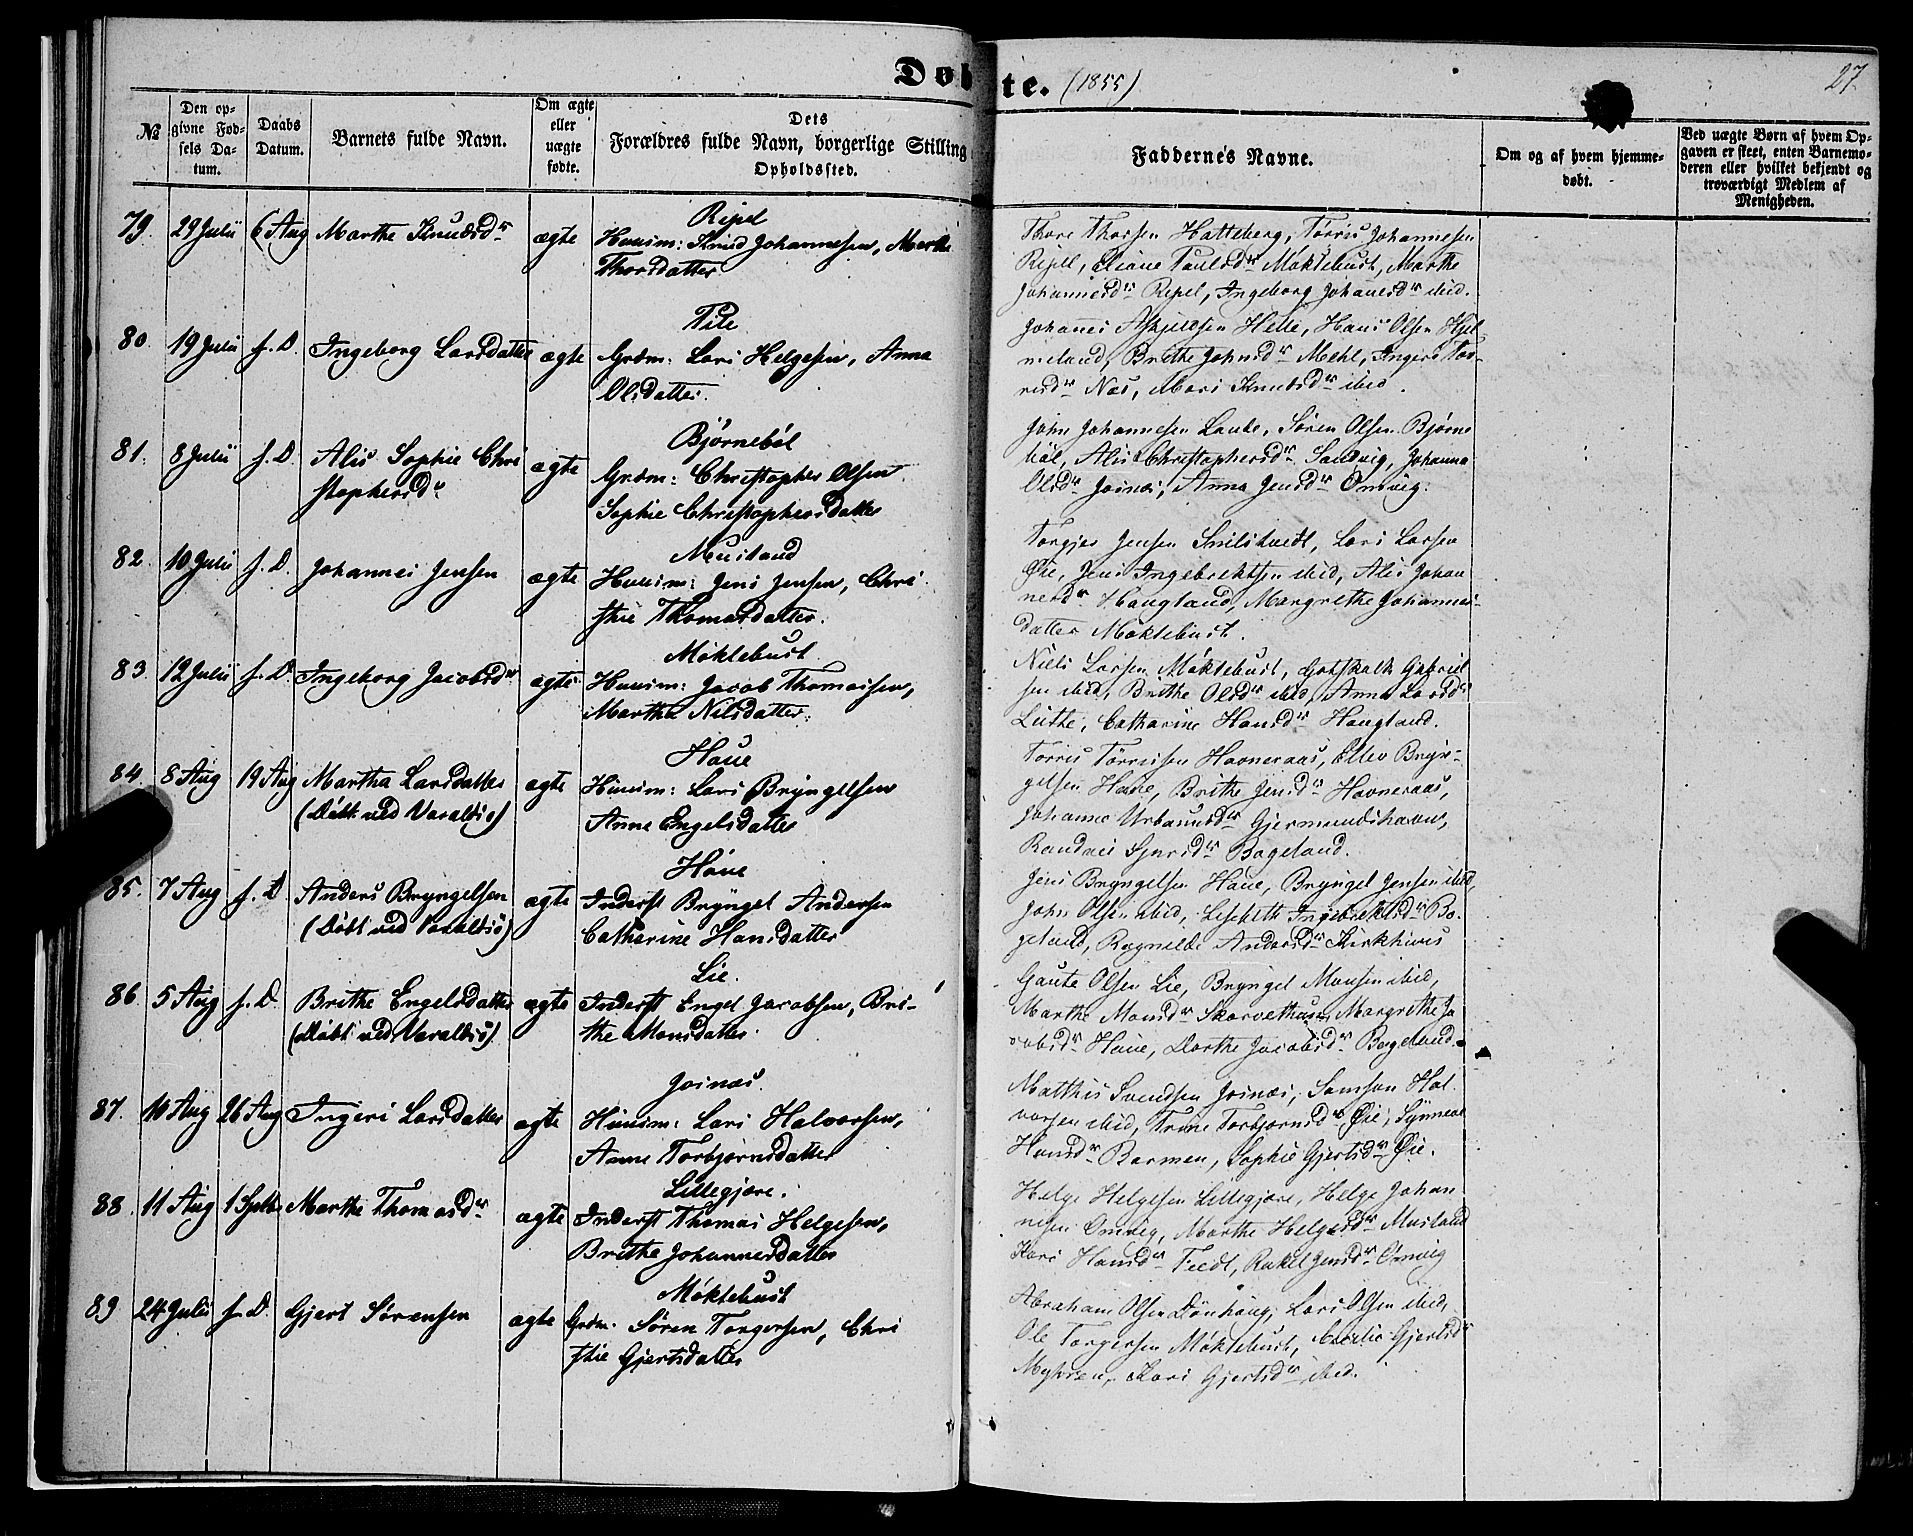 Døbte. (1855)
27.
№
Den opgivne Fødsels Datum.
Daabs Datum.
Barnets fulde Navn.
Om ægte eller uægte fødte.
Dets Forældres fulde Navn, borgerlige Stilling
Opholdssted.
Faddernes Navne.
Om og af hvem hjemmedøbt.
Ved uægte Børn af hvem Opgaven er skeet, enten Barnemoderen eller hvilket bekjendt og troværdigt Medlem af Menigheden.
Ripel
79. 29 Julii 6 Aug Marthe Knudsdr ægte Huusm: Knud Johannesen, Marthe
Thorsdatter
Thore Thorsen Hatteberg, Tørris Johannesen
Ripel, Paulsdr Møklebust, Marthe
Johannesdr Ripel, Ingeborg Johanesdr ibid.
80. 19 Julii s. D. Ingeborg Larsdatter ægte Grdm: Lars Helgesen, Anna
Olsdatter.
Johanes Askjeldsen Helle, Hans Olsen Hjel-
meland, Brithe Johnsdr Mehl, Ingeri Tor-
risdr Næs, Mari Knutsdr ibid.
Bjørnebøl
81. 8 Julii s. D. Alis Sophie Chri
stophersdr
ægte
Grdm: Christopher Olsen
Sophie Christophersdatter
John Johannesen Laute, Søren Olsen Bjørne
bøl, Alis Christophersdr Sandvig, Johanna
Olsdr Joinæs, Anna Jensdr Omvig.
Musland
82. 10 Julii s. D. Johannes Jensen ægte Huusm: Jens Jensen, Chri
stie Thomasdatter.
Torgjer Jensen Snilstvedt, Lars Larsen
Øie, Jens Ingebrektsen ibid, Alis Johan
nesdr Haugland, Margrethe Johannes-
datter Møklebust.
Møklebust
83. 12 Julii s. D. Ingeborg Jacobsdr ægte Huusm: Jacob Thomassen,
Martha Nilsdatter.
Niels Larsen Møklebust, Gotskalk Gabriel
sen ibid, Brithe Olsdr ibid, Anna Larsdr
Luthe, Catharine Hansdr Haugland.
Haue
84. 8 Aug 19 Aug Martha Larsdatter
(Døbt ved Varaldsø)
ægte
Huusm: Lars Bryngelsen
Anne Engelsdatter
Torris Tørrissen Havneraas, Ellev Bryn-
gelsen Haue, Brithe Jensdr Havneraas,
Johanne Urbanusdr Gjermundshavn,
Randvei Sjursdr Bogeland.
Haue
85. 7 Aug s. D. Anders Bryngelsen
(Døbt ved Varaldsø)
ægte
Inderst Bryngel Andersen
Catharine Hansdatter
Jens Bryngelsen Haue, Bryngel Jensen ibid,
John Olsen ibid, Lisbeth Ingebrektsdr Bo-
geland, Ragnilde Andersdr Kirkhuus
Lie.
86. 5 Aug s. D. Brithe Engelsdatter
(Døbt ved Varaldsø)
ægte
Inderst Engel Jacobsen, Bri-
the Monsdatter.
Gaute Olsen Lie, Bryngel Monsen ibid,
Marthe Monsdr Skorvethun, Margrethe Ja
cobsdr Haue, Dorthe Jacobsdr Bogeland.
Joinæs.
87. 10 Aug 26 Aug Ingeri Larsdatter ægte Huusm: Lars Halvorsen,
Anne Torbjørnsdatter
Matthis Svendsen Joinæs, Samson Hal
vorsen ibid, Trine Torbjørnsdr Øie, Synneve
Hansdr Barmen, Sophie Gjertsdr Øie.
Lillegjøre.
88. 11 Aug 1 Septb. Marthe Thomasdr ægte Inderst Thomas Helgesen,
Brithe Johannesdatter
Helge Helgesen Lillegjøre, Helge Johan
nesen Omvig, Marthe Helgesdr Musland
Kari Hansdr Tvedt, Rakel Jensdr Omvig
Møklebust
89 24 Julii s. D. Gjert Sørensen ægte Grdm. Søren Torgersen, Chri
stie Gjertsdatter
Abraham Olsen Dønhaug, Lars Olsen ibid,
Ole Torgersen Møklebust, Gjertsdr
Myhren, Kari Gjertsdr ibid.